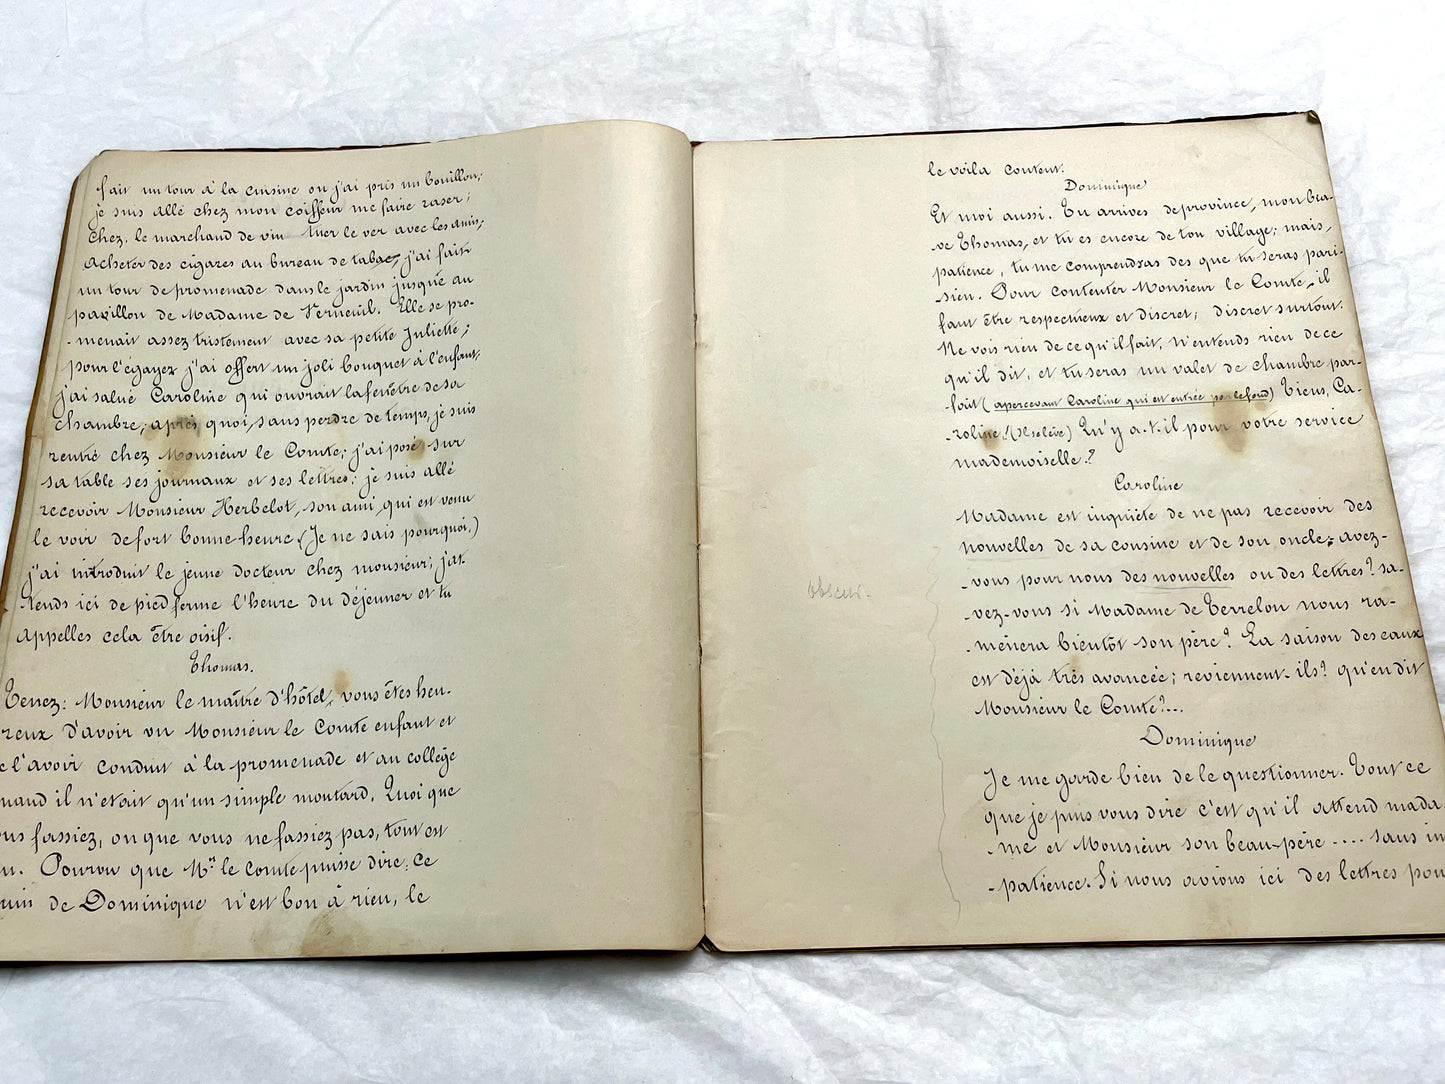 fait un tour à la cuisine ou j'ai pris un bouillon;
je suis allé chez mon coiffeur me faire raser;
chez le marchand de vin tuer le ver avec les amis;
acheter des cigares au bureau de tabac, j'ai fait
un tour de promenade dans le jardin jusqué au
pavillon de Madame de Verneuil. Elle se pro-
-menait assez tristement avec sa petite Juliette;
pour l'égayer j'ai offert un joli bouquet à l'enfant,
j'ai salué Caroline qui ouvrait la fenêtre de sa
chambre; après quoi, sans perdre de temps, je suis
rentré chez Monsieur le Comte; j'ai posé sur
sa table ses journaux et ses lettres; je suis allé
recevoir Monsieur Herbelot, son ami, qui est venu
le voir de fort bonne heure (Je ne sais pourquoi,)
j'ai introduit le jeune docteur chez monsieur; j'at-
-tends ici de pied ferme l'heure du déjeuner et tu
appelles cela être oisif.
Thomas.
Tenez: Monsieur le maître d'hôtel, vous êtes heu-
reux d'avoir vu Monsieur le Comte enfant et
l'avoir conduit à la promenade et au collège
quand il n'était qu'un simple moutard. Quoi que
vous fassiez, ou que vous ne fassiez pas, tout est
Pourvu que Mr le comte puisse dire: Ce
de Dominique n'est bon à rien, le
le voila content.
Dominique
Et moi aussi. Tu arrives de province, mon bra-
-ve Thomas, et tu es encore de ton village; mais,
patience, tu me comprendras des que tu seras pari-
-sien. Pour contenter Monsieur le Comte, il
faut être respectueux et discret; discret surtout.
Ne vois rien de ce qu'il fait, n'entends rien de ce
qu'il dit, et tu seras un valet de chambre par-
-fait (apercevant Caroline qui est entrée par le fond) Tiens, Ca-
-roline! (Il se lève) Qu'y a-t-il pour votre service
mademoiselle?
Caroline
Madame est inquiète de ne pas recevoir des
nouvelles de sa cousine et de son oncle; avez-
-vous pour nous des nouvelles ou des lettres? sa-
vez-vous si Madame de Terrelou nous ra-
-mènera bientôt son père? La saison des eaux
est déjà très avancée; reviennent-ils? qu'en dit
Monsieur le Comte?...
Dominique
Je me garde bien de le questionner. Tout ce
que je puis vous dire c'est qu'il attend mada-
-me et Monsieur son beau-père .... sans im
-patience. Si nous avions ici des lettres pou